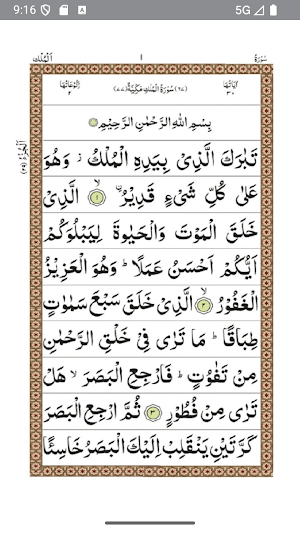 9:16 5G
سُورَة ١ اَلْمُلْك
اٰيَاتُهَا ٣٠ (٦٧) سُورَةُ الْمُلْكِ مَكِّيَّةٌ (٧٧) رُكُوْعَاتُهَا ٢
بِسْمِ اللهِ الرَّحْمٰنِ الرَّحِيْمِ
تَبٰرَكَ الَّذِىْ بِيَدِهِ الْمُلْكُ ۫ وَهُوَ
عَلٰى كُلِّ شَىْءٍ قَدِيْرُ ۨ ۙ ١ الَّذِىْ
خَلَقَ الْمَوْتَ وَالْحَيٰوةَ لِيَبْلُوَكُمْ
اَيُّكُمْ اَحْسَنُ عَمَلًا ؕ وَهُوَ الْعَزِيْزُ
الْغَفُوْرُ ۙ ٢ الَّذِىْ خَلَقَ سَبْعَ سَمٰوٰتٍ
طِبَاقًا ؕ مَا تَرٰى فِىْ خَلْقِ الرَّحْمٰنِ
مِنْ تَفٰوُتٍ ؕ فَارْجِعِ الْبَصَرَ ۙ هَلْ
تَرٰى مِنْ فُطُوْرٍ ٣ ثُمَّ ارْجِعِ الْبَصَرَ
كَرَّتَيْنِ يَنْقَلِبْ اِلَيْكَ الْبَصَرُ خَاسِئًا